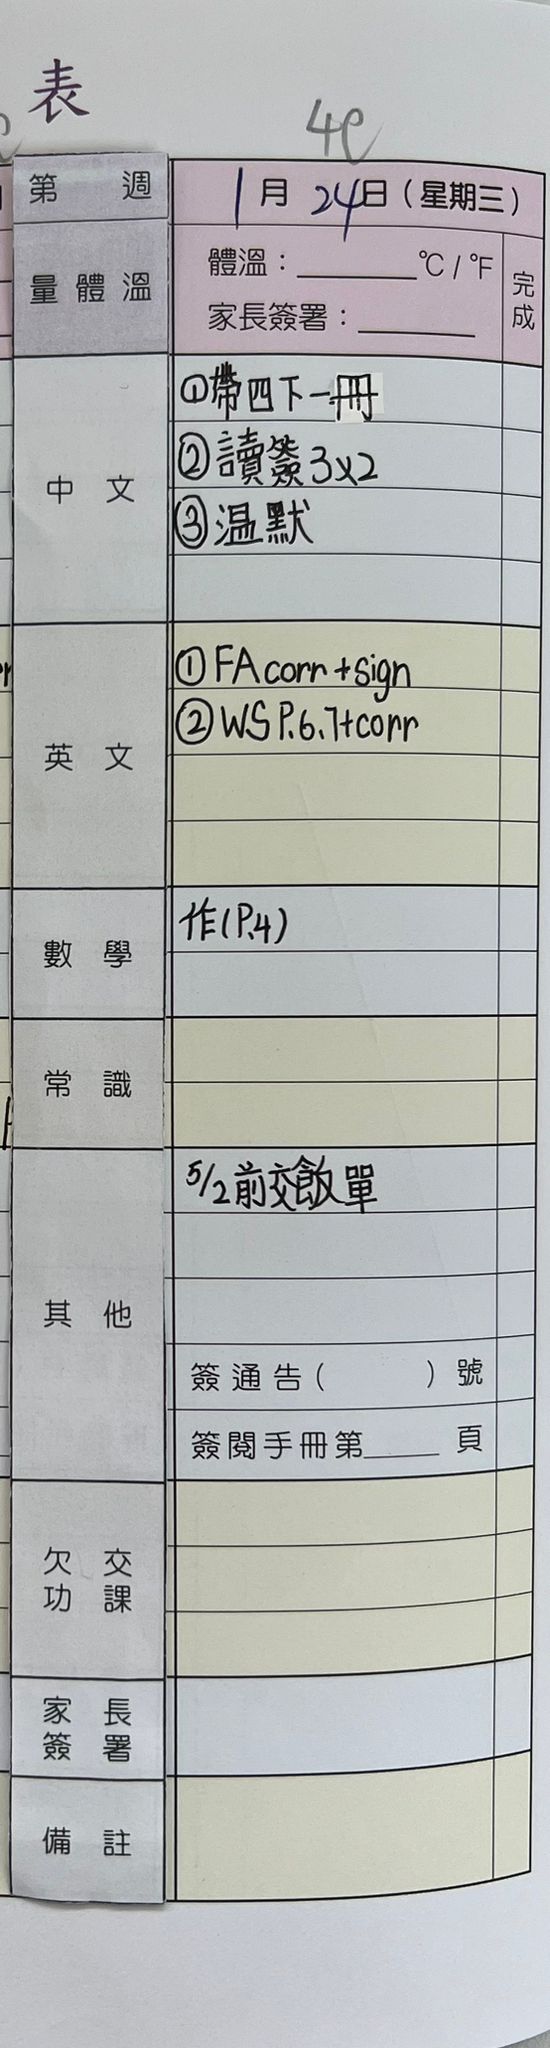 表
4e
第 週
1月24日(星期三)
量體溫
體溫：______℃/℉
家長簽署：______
完成
中文
①帶四下一冊
②讀簽3x2
③温默
英文
①FA corr + sign
②WS P.6.7+corr
數學
作(P.4)
常識
其他
5/2前交飯單
簽通告( )號
簽閱手冊第____頁
欠交
功課
家長
簽署
備註